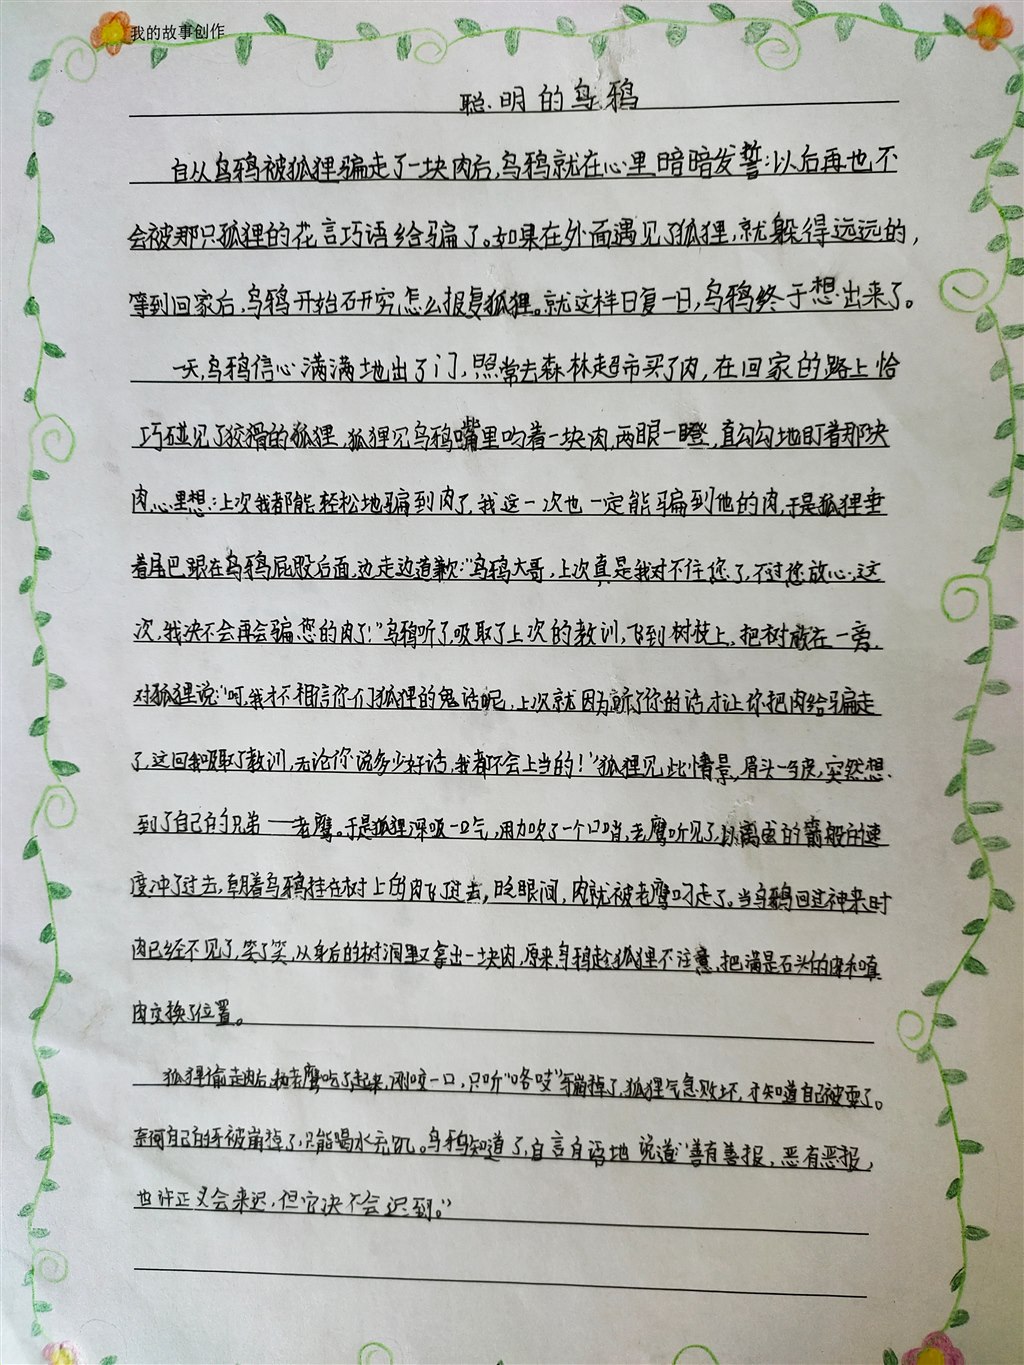 我的故事创作
聪明的乌鸦
自从乌鸦被狐狸骗走了一块肉后,乌鸦就在心里暗暗发誓:以后再也不
会被那只狐狸的花言巧语给骗了。如果在外面遇见了狐狸,就躲得远远的,
等到回家后,乌鸦开始研究怎么报复狐狸。就这样日复一日,乌鸦终于想出来了。
一天,乌鸦信心满满地出了门,照常去森林超市买了肉,在回家的路上恰
巧碰见了狡猾的狐狸,狐狸见乌鸦嘴里叼着一块肉,两眼一瞪,直勾勾地盯着那块
肉,心里想:上次我都能轻松地骗到肉了,我这一次也一定能骗到他的肉,于是狐狸垂
着尾巴跟在乌鸦屁股后面,边走边道歉:“乌鸦大哥,上次真是我对不住您了,不过您放心,这
次,我决不会再会骗您的肉了!”乌鸦听了,吸取了上次的教训,飞到树枝上,把树放在一旁,
对狐狸说:“呵,我才不相信你们狐狸的鬼话呢,上次就因为听了你的话,才让你把肉给骗走
了,这回我吸取了教训,无论你说多少好话,我都不会上当的!”狐狸见此情景,眉头一皱,突然想
到了自己的兄弟——老鹰。于是狐狸深吸一口气,用力吹了一个口哨,老鹰听见了,以离弦的箭般的速
度冲了过去,朝着乌鸦挂在树上的肉飞了过去,眨眼间,肉就被老鹰叼走了。当乌鸦回过神来时
肉已经不见了,笑了笑,从身后的树洞里又拿出一块肉,原来,乌鸦趁狐狸不注意,把满是石头的肉和真
肉交换了位置。
狐狸偷走肉后,和老鹰吃了起来,刚咬一口,只听“咯吱”牙崩掉了,狐狸气急败坏,才知道自己被耍了。
奈何自己的牙被崩掉了,只能喝水充饥。乌鸦知道了,自言自语地说道:“善有善报,恶有恶报,
也许正义会来迟,但它决不会迟到。”